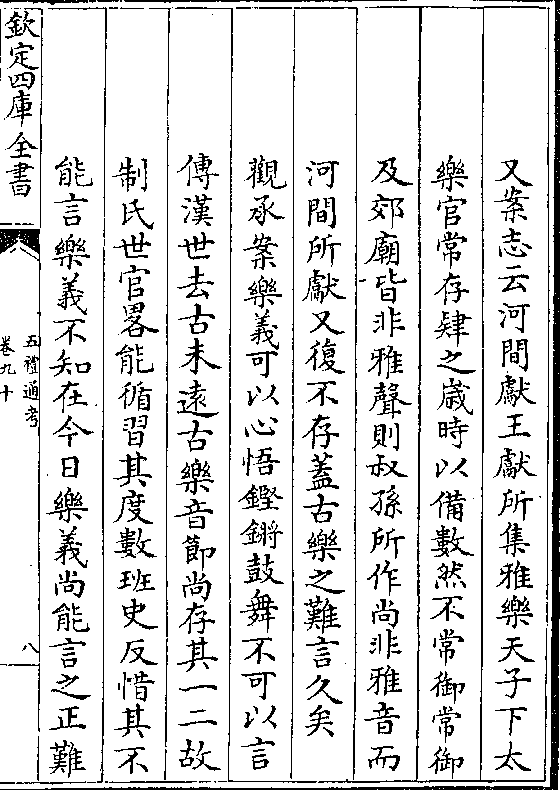 又案志云河間獻王獻所集雅樂天子下太
樂官常存肄之歲時以備數然不常御常御
及郊廟皆非雅聲則叔孫所作尚非雅音而
河間所獻又復不存蓋古樂之難言久矣
觀承案樂義可以心悟鏗鏘鼓舞不可以言
傳漢世去古未遠古樂音節尚存其一二故
制氏世官畧能循習其度數班史反惜其不
能言樂義不知在今日樂義尚能言之正難
欽定四庫全書
五禮通考
卷九十
八